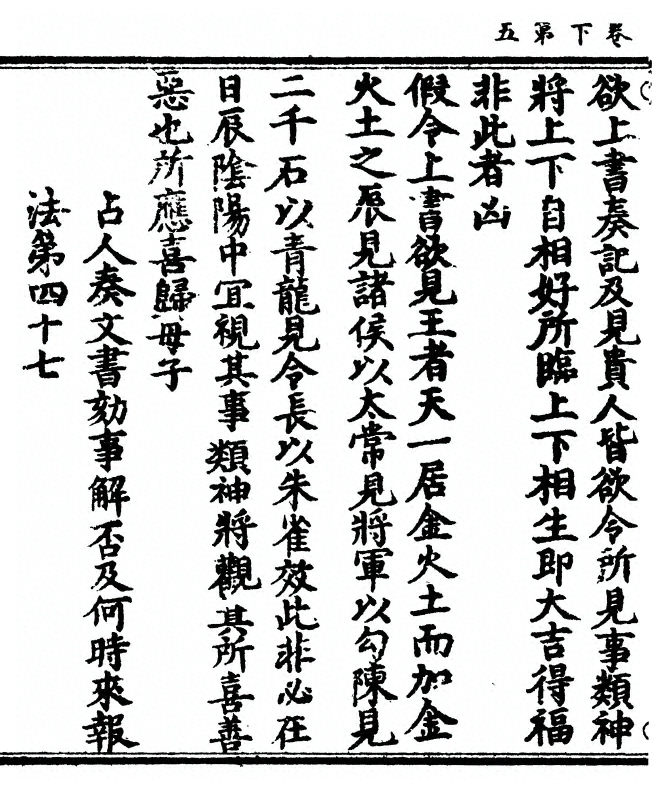 卷下第五
欲上書奏記及見貴人皆欲令所見事類神
將上下自相好所臨上下相生即大吉得福
非此者凶
假令上書欲見王者天一居金火土而加金
火土之辰見諸侯以太常見將軍以勾陳見
二千石以青龍見令長以朱雀效此非必在
日辰陰陽中冝視其事類神將觀其所喜善
惡也所應喜歸母子
占人奏文書劾事解否及何時來報
法第四十七